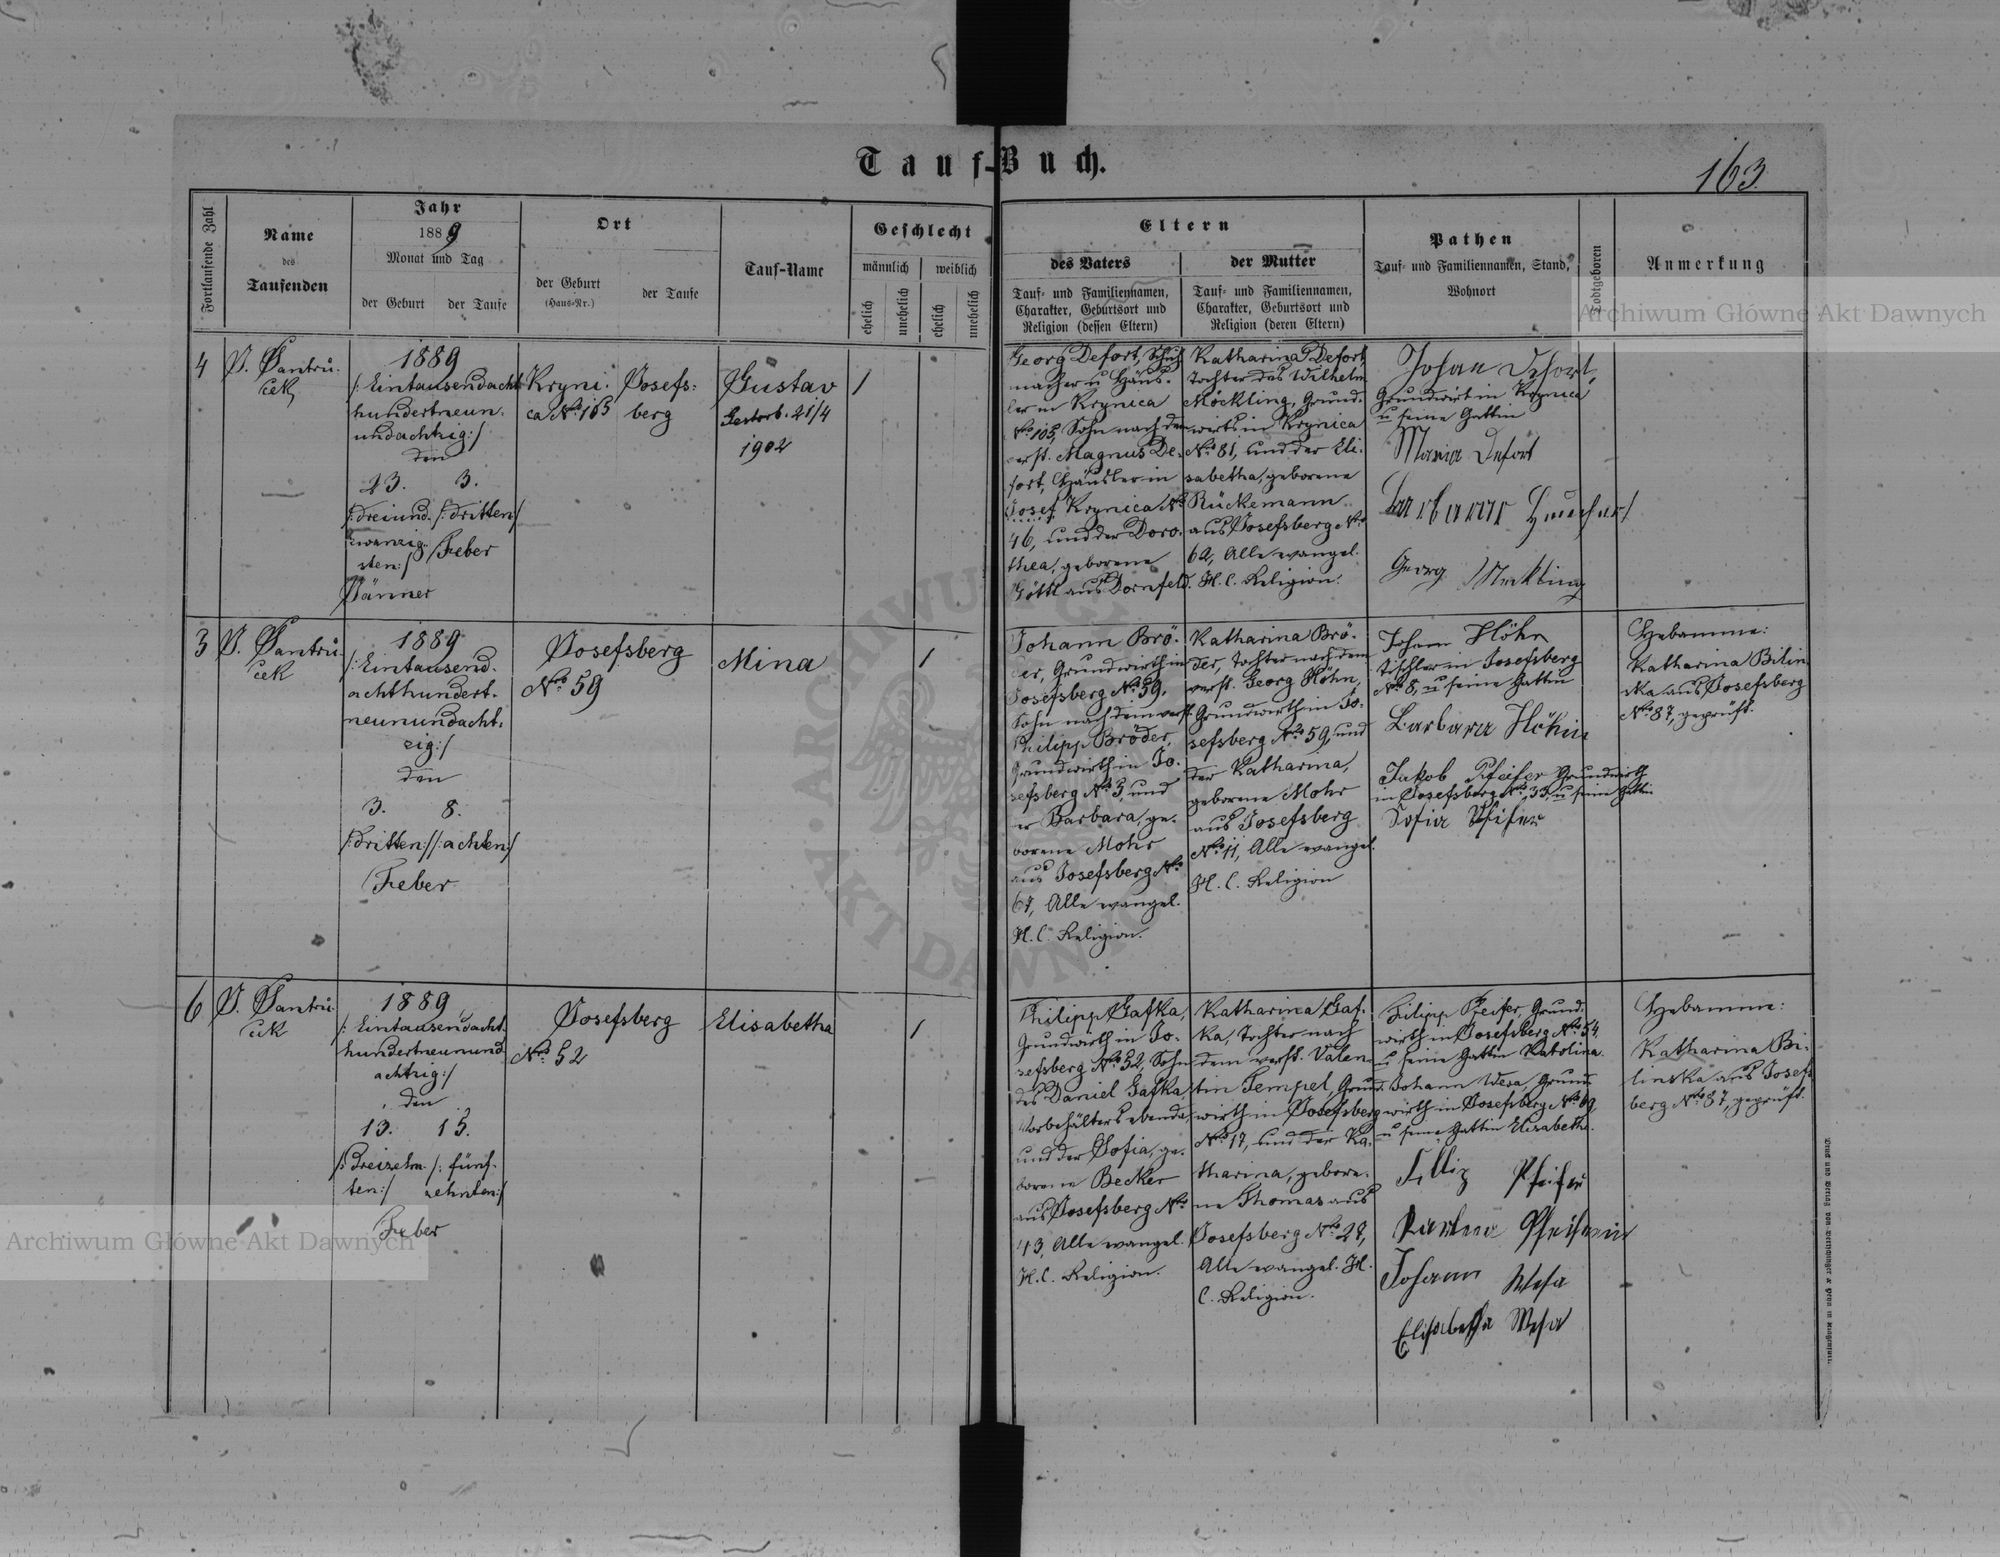 Tauf-Buch.
163.
Fortlaufende Zahl
Name
des
Taufenden
Jahr
1889
Monat und Tag
der Geburt
der Taufe
Ort
der Geburt
(Haus-Nr.)
der Taufe
Tauf-Name
Geschlecht
männlich
weiblich
ehelich
unehelich
ehelich
unehelich
Eltern
des Vaters
Tauf- und Familiennamen,
Charakter, Geburtsort und
Religion (dessen Eltern)
der Mutter
Tauf- und Familiennamen,
Charakter, Geburtsort und
Religion (deren Eltern)
Pathen
Tauf- und Familiennamen, Stand,
Wohnort
Todtgeboren
Anmerkung
Archiwum Główne Akt Dawnych
4
J. Jantrů
cek
1889
/: Eintausendacht
hundertneun.
undachtzig:/
den
23. 3.
/: dreiund. /: dritten:/
zwanzig.
sten:/ Feber
Jänner
Kryni.
ca No 105
Josefs:
berg
Gustav
Gestorb. 21/4
1902
/
Georg Defort, Schuh
macher u Häus.
ler in Krynica
No 105, Sohn nach dem
verst. Magnus De.
fort, Häusler in
Josef Krynica No
46, und der Doro.
thea, geborene
Göttl aus Dornfeld.
Katharina Defort,
Tochter des Wilhelm
Möckling, Grund.
wirts in Krynica
No 81, und der Eli.
sabetha, geborene
Rückemann
aus Josefsberg No
62, Alle evangel.
H. C. Religion.
Johan Defort,
Grundwirt in Krynica
u seine Gattin
Maria Defort
Barbara
Georg Mekling
5
J. Jantrů.
cek
1889
/: Eintausend.
achthundert.
neunundacht.
zig:/
den
3. 8.
/: dritten:/ /: achten:/
Feber
Josefsberg
No 59
Mina
/
Johann Brö.
der, Grundwirth in
Josefsberg No 59,
Sohn nach dem verst.
Philipp Bröder,
Grundwirth in Jo.
sefsberg No 5, und
der Barbara, ge.
borene Mohr
aus Josefsberg No
67, Alle evangel.
H. C. Religion.
Katharina Brö.
der, Tochter nach dem
verst. Georg Höhn,
Grundwirth in Jo.
sefsberg No 59, und
der Katharina,
geborene Mohr
aus Josefsberg
No 11, Alle evangel.
H. C. Religion
Johann Höhn
Tischler in Josefsberg
No 8, u seine Gattin
Barbara Höhn
Jakob Pfeifer Grundwirth
in Josefsberg No 33, u seine Gattin
Sofia Pfeifer
Hebamme:
Katharina Bilin
ska aus Josefsberg
No 87, geprüft.
6
J. Jantrů.
cek
1889
/: Eintausendacht.
hundertneunund
achtzig:/
den
13. 15.
/: dreizehn. /: fünf.
ten:/ zehnten:/
Feber
Josefsberg
No 52
Elisabetha
/
Philipp Gafka,
Grundwirth in Jo.
sefsberg No 52, Sohn
des Daniel Gafka,
Vorbehälters ebenda,
und der Sofia, ge.
borene Becker
aus Josefsberg No
43, Alle evangel.
H. C. Religion.
Katharina Gaf.
ka, Tochter nach
dem verst. Valen.
tin Tempel, Grund.
wirth in Josefsberg
No 17, und der Ka.
tharina, gebore.
ne Thomas aus
Josefsberg No 27,
Alle evangel. H.
C. Religion.
Filipp Pfeifer, Grund.
wirth in Josefsberg No 54,
u seine Gattin Karolina.
Johann Wesa, Grund
wirth in Josefsberg No 69
u seine Gattin Elisabetha.
Fillip Pfeifer
Johann Wesa
Elisabetha Wesa
Hebamme:
Katharina Bi.
linska aus Josefs
berg No 87, geprüft.
Archiwum Główne Akt Dawnych
ARCHIWUM
AKT DAWNYCH